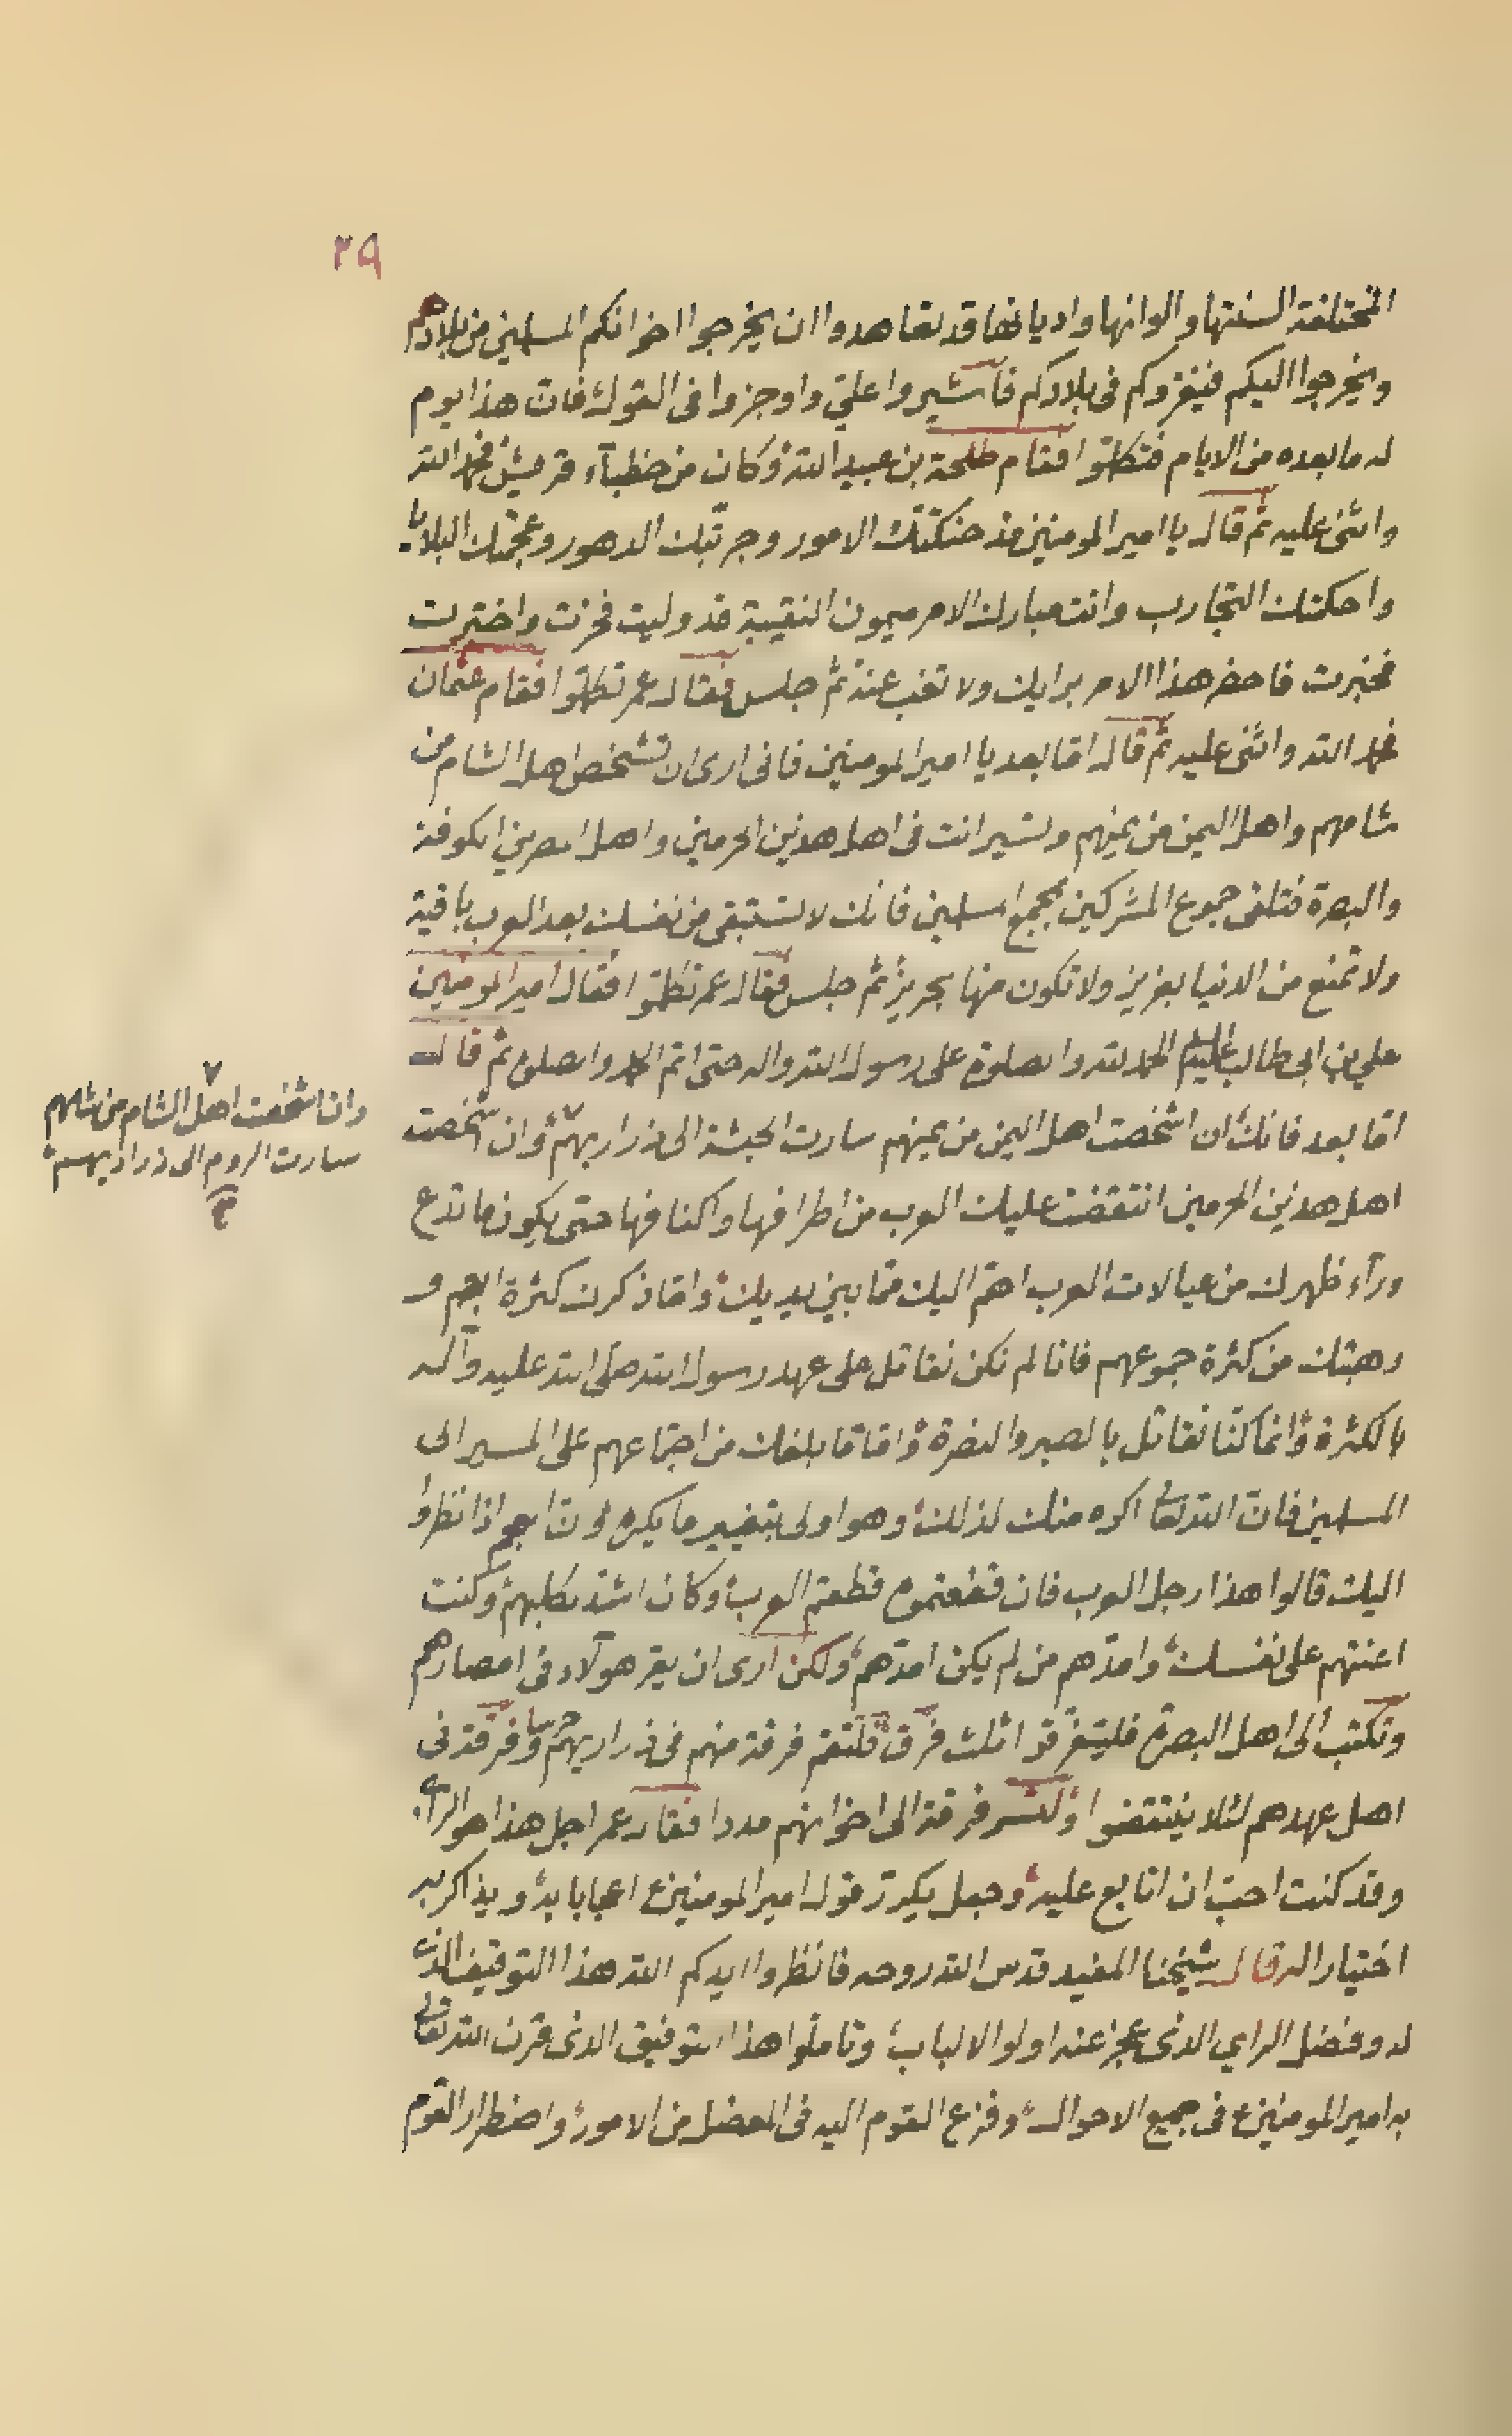 ٣٩
المختلفة السنتها والوانها واديانها قد تعاهدوا ان يخرجوا اخوانكم المسلمين من بلادهم
ويخرجوا اليكم فيغزوكم في بلادكم فاشيروا علي واوجزوا في القول فان هذا يوم
له ما بعده من الايام فتكلموا فقام طلحة بن عبيد الله وكان من خطباء قريش فحمد الله
واثنى عليه ثم قال يا امير المومنين قد حنكتك الامور وجربتك الدهور وعجمتك البلايا
واحكمتك التجارب وانت مبارك الامر ميمون النقيبة قد وليت فخبرت واختبرت
فخبرت فاحضر هذا الامر برايك ولا تغب عنه ثم جلس فقال عمر تكلموا فقام عثمان
فحمد الله واثنى عليه ثم قال اما بعد يا امير المومنين فاني ارى ان تشخص اهل الشام من
شامهم واهل اليمن من يمنهم وتسير انت في اهل هذين الحرمين واهل المصرين الكوفة
والبصرة فتلقى جموع المشركين بجمع المسلمين فانك لا تستبقي من نفسك بعد العرب باقية
ولا تمتع من الدنيا بعزيز ولا تكون منها بحريز ثم جلس فقال عمر تكلموا فقال امير المومنين
علي بن ابي طالب عليه السلم الحمد لله والصلوة على رسول الله واله حتى اتم الحمد والصلوة ثم قال
اما بعد فانك ان اشخصت اهل اليمن من يمنهم سارت الحبشة الى ذراريهم وان اشخصت
وان اشخصت اهل الشام من شامهم
سارت الروم الى ذراريهم
اهل هذين الحرمين انتقضت عليك العرب من اطرافها واكنافها حتى يكون ما تدع
وراء ظهرك من عيالات العرب اهم اليك مما بين يديك واما ذكرك كثرة العجم و
رهبتك من كثرة جموعهم فانا لم نكن نقاتل على عهد رسول الله صلى الله عليه وآله
بالكثرة وانما كنا نقاتل بالصبر والنصرة واما ما بلغك من اجتماعهم على المسير الى
المسلمين فان الله تعالى اكره منك لذلك وهو اولى بتغيير ما يكره وان العجم اذا نظروا
اليك قالوا هذا رجل العرب فان قطعتموه قطعتم العرب وكان اشد لكلبهم وكنت
اعنتهم على نفسك وامدهم من لم يكن امدهم ولكن ارى ان يقر هولاء في امصارهم
وتكتب الى اهل البصرة فليتفرقوا ثلث فرق فلتقم فرقة منهم في ذراريهم حرسا وفرقة في
اهل عهدهم لئلا ينتقضوا ولتسر فرقة الى اخوانهم مددا فقال عمر اجل هذا هو الراي
وقد كنت احب ان اتابع عليه وجعل يكرر قول امير المومنين ع اعجابا به ويذاكر به
اختيارا له قال شيخنا المفيد قدس الله روحه فانظروا ايدكم الله هذا التوقيف الذي
له وفضل الراي الذي عجز عنه اولو الالباب وتاملوا هذا التوفيق الذي قرن الله تعالى
به امير المومنين ع في جميع الاحوال وفزع القوم اليه في المعضل من الامور واضطرار القوم